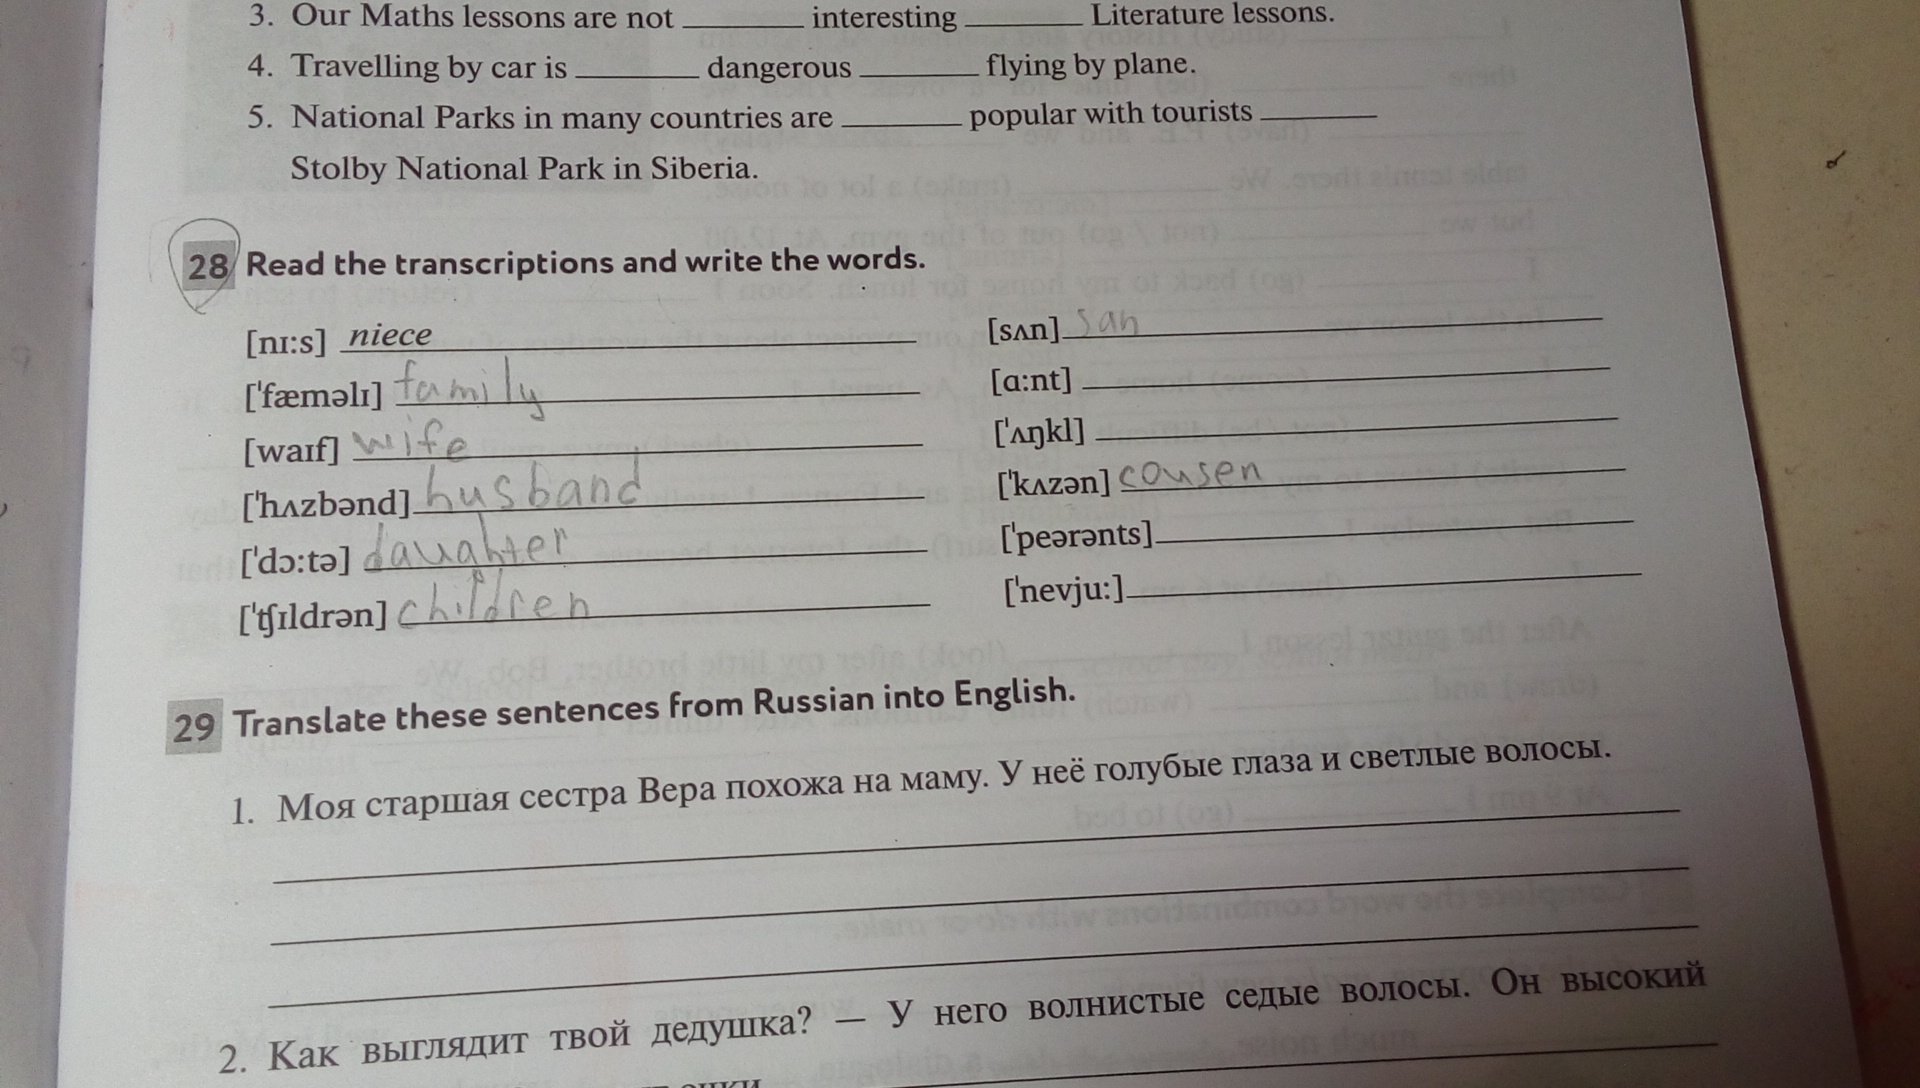 3. Our Maths lessons are not ________ interesting ________ Literature lessons.
4. Travelling by car is ________ dangerous ________ flying by plane.
5. National Parks in many countries are ________ popular with tourists ________
Stolby National Park in Siberia.
28 Read the transcriptions and write the words.
[nɪ:s] niece
[ˈfæməlɪ] family
[waɪf] wife
[ˈhʌzbənd] husband
[ˈdɔ:tə] daughter
[ˈʧɪldrən] children
[sʌn] san
[ɑ:nt]
[ˈʌŋkl]
[ˈkʌzən] cousen
[ˈpeərənts]
[ˈnevju:]
29 Translate these sentences from Russian into English.
1. Моя старшая сестра Вера похожа на маму. У неё голубые глаза и светлые волосы.
2. Как выглядит твой дедушка? — У него волнистые седые волосы. Он высокий